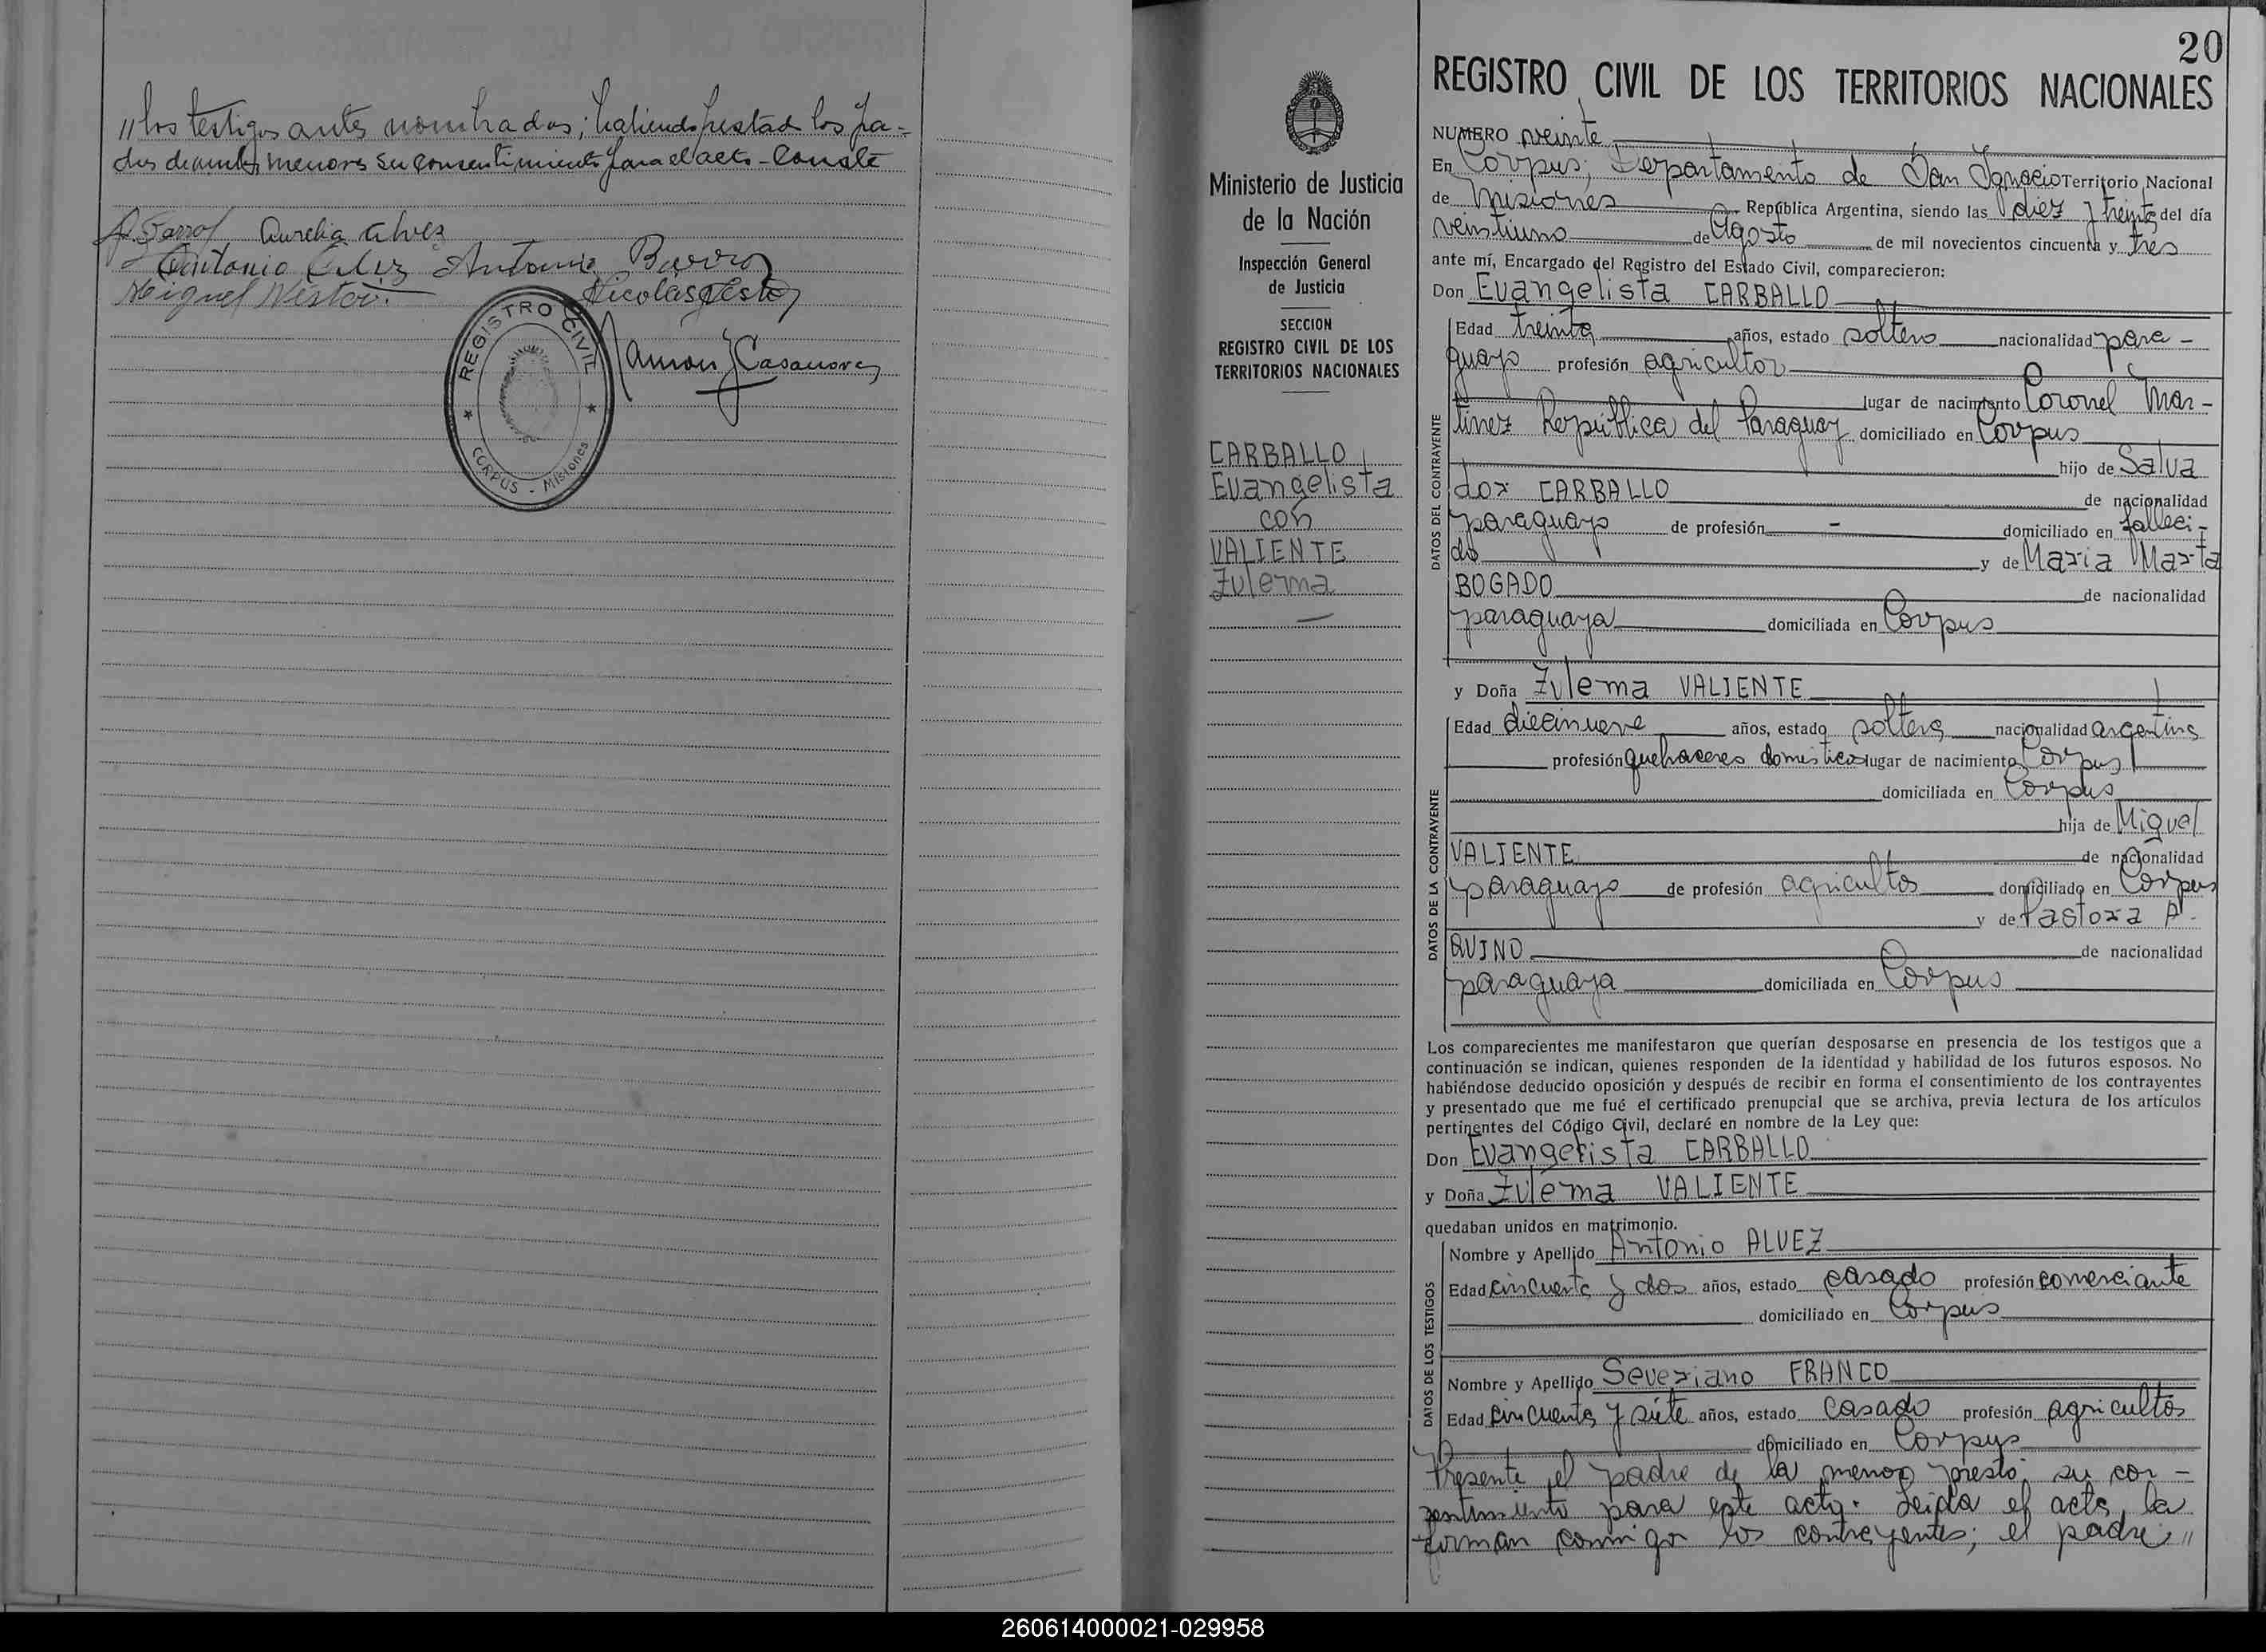 // los testigos antes nombrados; habiendo prestado los pa=
dres de ambos menores su consentimiento para el acto - Conste
Aurelia Alvez
Antonio Barro
Miguel Nestor.
Nicolas
REGISTRO CIVIL
CORPUS - Misiones
Ramon J Casanova
20
Ministerio de Justicia
de la Nación
Inspección General
de Justicia
SECCION
REGISTRO CIVIL DE LOS
TERRITORIOS NACIONALES
CARBALLO
Evangelista
con
VALIENTE
Zulema
REGISTRO CIVIL DE LOS TERRITORIOS NACIONALES
NUMERO veinte
En Corpus; Departamento de San Ignacio Territorio Nacional
de Misiones República Argentina, siendo las diez y treinta del día
veintiuno de Agosto de mil novecientos cincuenta y tres
ante mí, Encargado del Registro del Estado Civil, comparecieron:
Don Evangelista CARBALLO
DATOS DEL CONTRAYENTE
Edad treinta años, estado soltero nacionalidad para-
guayo profesión agricultor
lugar de nacimiento Coronel Mar-
tinez República del Paraguay domiciliado en Corpus
hijo de Salva
dor CARBALLO de nacionalidad
paraguayo de profesión - domiciliado en falleci-
do y de Maria Marta
BOGADO de nacionalidad
paraguaya domiciliada en Corpus
y Doña Zulema VALIENTE
DATOS DE LA CONTRAYENTE
Edad diecinueve años, estado soltera nacionalidad argentina
profesión quehaceres domésticos lugar de nacimiento Corpus
domiciliada en Corpus
hija de Miguel
VALIENTE de nacionalidad
paraguayo de profesión agricultor domiciliado en Corpus
y de Pastora A-
QUINO de nacionalidad
paraguaya domiciliada en Corpus
Los comparecientes me manifestaron que querían desposarse en presencia de los testigos que a
continuación se indican, quienes responden de la identidad y habilidad de los futuros esposos. No
habiéndose deducido oposición y después de recibir en forma el consentimiento de los contrayentes
y presentado que me fué el certificado prenupcial que se archiva, previa lectura de los artículos
pertinentes del Código Civil, declaré en nombre de la Ley que:
Don Evangelista CARBALLO
y Doña Zulema VALIENTE
quedaban unidos en matrimonio.
DATOS DE LOS TESTIGOS
Nombre y Apellido Antonio ALVEZ
Edad cincuenta y dos años, estado casado profesión comerciante
domiciliado en Corpus
Nombre y Apellido Severiano FRANCO
Edad cincuenta y siete años, estado casado profesión agricultor
domiciliado en Corpus
Presente el padre de la menor prestó su con-
sentimiento para este acto. Leida el acta, la
firman conmigo los contrayentes; el padre; //
260614000021-029958